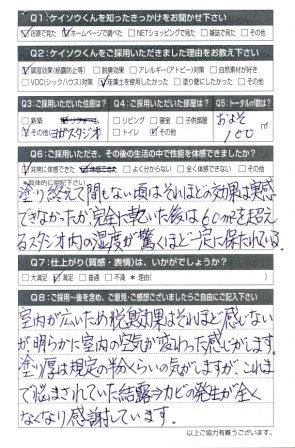 Q1：ケイソウくんを知ったきっかけをお聞かせ下さい
☑店頭で見た ☑ホームページで調べた □NETショッピングで見た □雑誌で見た □その他
Q2：ケイソウくんをご採用いただきました理由をお教え下さい
☑調湿効果(結露防止等) □脱臭効果 □アレルギー(アトピー)対策 □自然素材が好き
□VOC(シックハウス)対策 ☑珪藻土を使用したかった □塗り壁にしたかった □その他
Q3：ご採用いただいた住居は？ Q4：ご採用いただいた場所は？ Q5：トータル㎡数は？
□新築
☑その他(ヨガスタジオ
□リビング □寝室 □子供部屋
□トイレ ☑その他
およそ
100 ㎡
Q6：ご採用いただき、その後の生活の中で性能を体感できましたか？
☑非常に体感できた □よく分からない □全くない □その他
＊具体的に教えて下さい
塗り終えて間もない頃はそれほどの効果は実感
できなかったが完全に乾いた後は60㎡を超え
るスタジオ内の湿度が驚くほど一定に保たれている。
Q7：仕上がり(質感・表情)は、いかがでしょうか？
□大満足 ☑満足 □普通 □不満 ＊理由( )
Q8：ご採用～後を含め、ご意見・ご感想ございましたらご自由にご記入下さい
室内が広いため脱臭効果はそれほど感じない
が、明らかに室内の空気が変わった感じがします。
塗り厚は規定の半分くらいの気がしますが、これま
で悩まされていた結露→カビの発生が全く
なくなり感謝しています。
以上ご協力有難うございます。